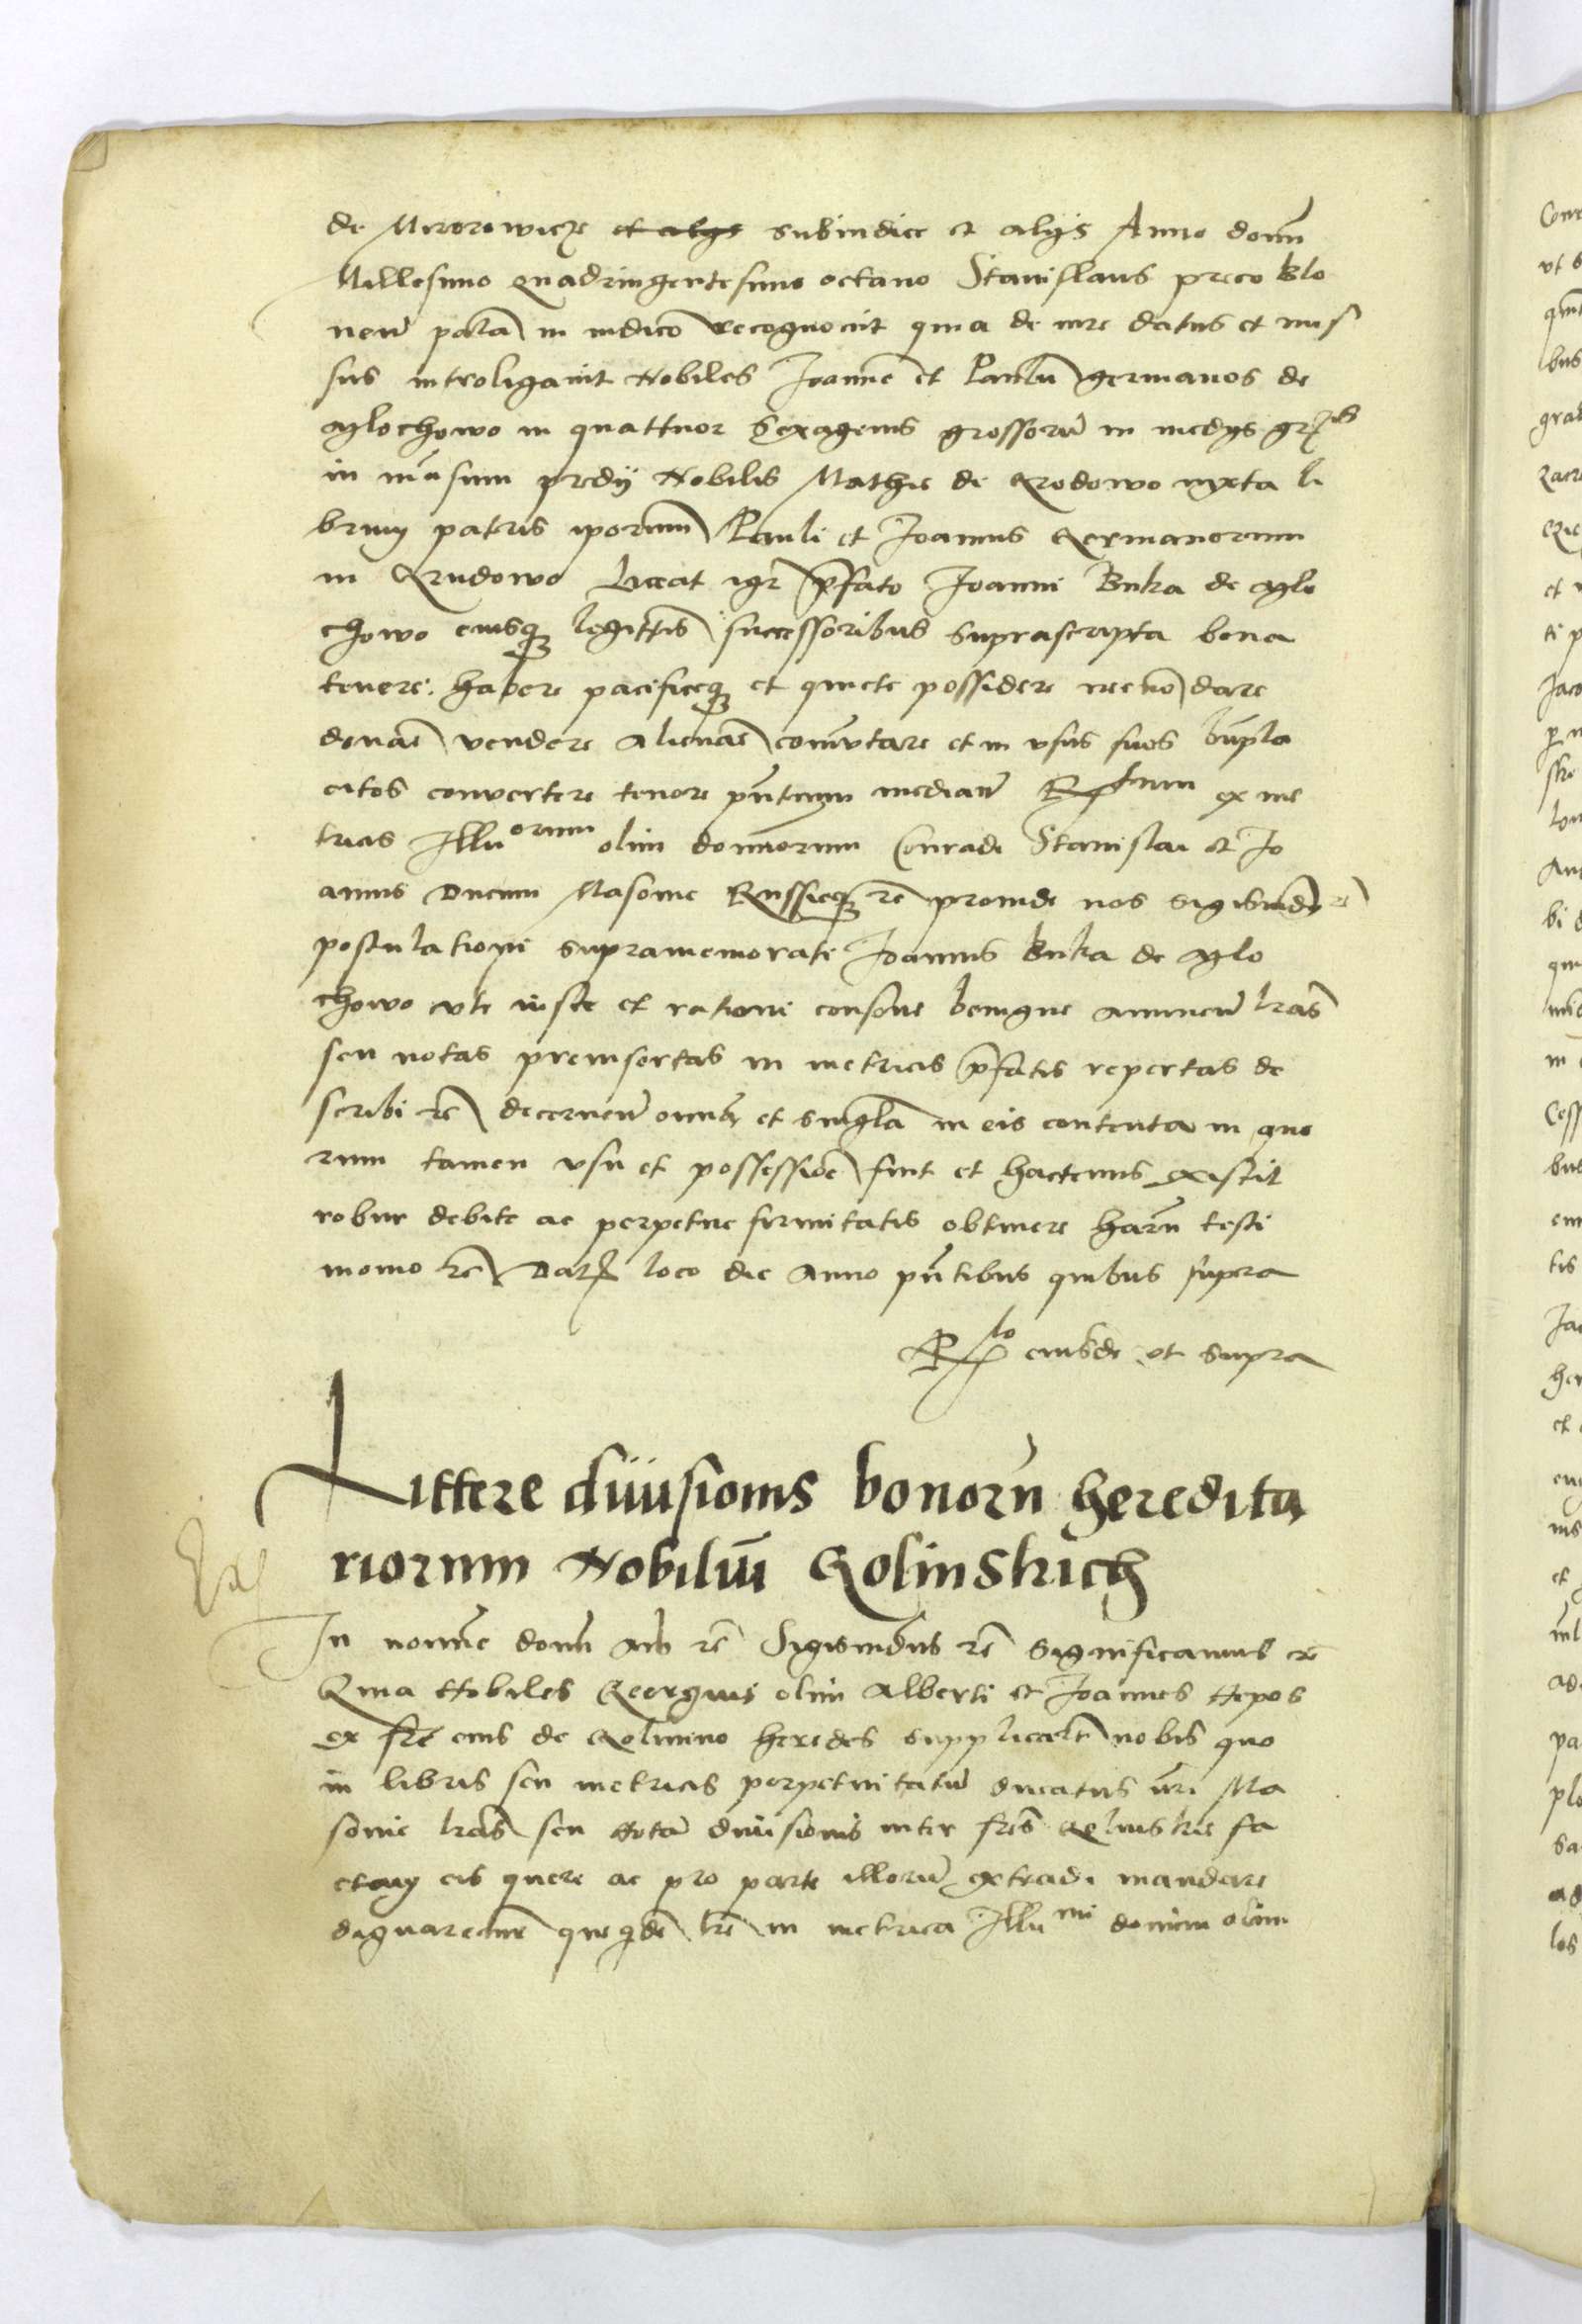 de Mrorowicze et alys subiudice et alijs Anno domi
Millesimo quadringentesimo octauo Stanislaus preco Blo
nen palam in iudicio recognouit quia de iure datus et mis
sus introligauit Nobiles Joanne et Paulu germanos de
Mlochowo in quattuor sexagenis grossoru in medys
in predij Nobilis Mathie de Grodowo iuxta li
brum patris iporum Pauli et Joannis Germanorum
in Grudowo Liceat igr pfato Joanni Buka de Mlo
chowo eiusq legittis successoribus suprascripta bona
tenere habere pacificeq et quiete possidere necno dare
donare vendere alienare comutare et in vsus suos bnpla
citos convertere tenore pntium median Rptum ex me
tricis Illu orum olim dominorum Conradi Stanislai et Jo
annis Ducum Masouie Russieq rc proinde nos Sigismudus rc
postulationi supramemorati Joannis Buka de Mlo
chowo vti iuste et rationi consone benigne annuen lras
seu notas preinsertas in metricis pfatis repertas de
scribi rc decernen omia et singla in eis contenta in quo
rum tamen vsu et possessioe fuit et hactenus existit
robur debite ac perpetue firmitatis obtinere haru testi
monio rc Dat loco die Anno pntibus quibus supra
Rlo eiusde vt supra
Littere diuisionis bonoru heredita
riorum Nobiliu Golinskich
In nomine domi am rc Sigismudus rc Significamus rc
Quia Nobiles Georgius olim Alberti et Joannes Nepos
ex fre eius de Golinino heredes supplicarut nobis quo
in libris seu metricis perpetuitatu ducatus nri Ma
souie lras seu Nota diuisionis inter fres Golinskie fa
ctam eis quere ac pro parte illoru extradi mandare
dignaremur queqde lre in metrica Illu mi domini olim